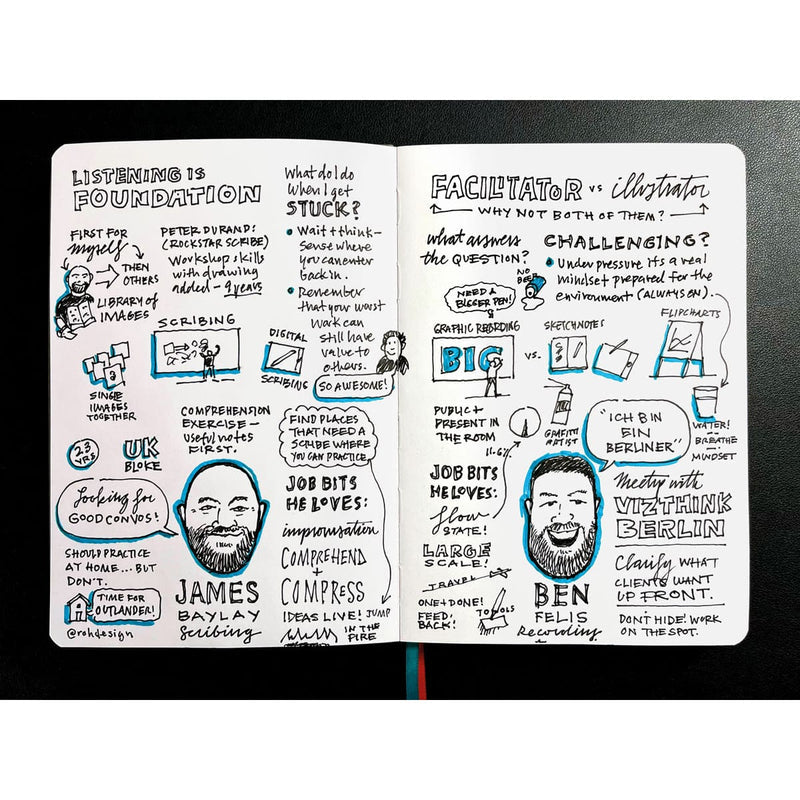 LISTENING IS
FOUNDATION
FIRST FOR
myself
THEN
OTHERS
LIBRARY OF
IMAGES
PETER DURAND:
(ROCKSTAR SCRIBE)
Workshop skills
with drawing
added - 9 years
SCRIBING
DIGITAL
SCRIBING
SINGLE
IMAGES
TOGETHER
COMPREHENSION
EXERCISE -
useful notes
FIRST.
2.3
YRS
UK
BLOKE
Looking for
GOOD CONVOS!
SHOULD PRACTICE
AT HOME... BUT
DON'T.
TIME FOR
OUTLANDER!
@rohdesign
JAMES
BAYLAY
Scribing
What do I do
when I get
STUCK?
• Wait + think -
sense where
you can enter
back in.
• Remember
that your worst
work can
still have
value to
others.
SO AWESOME!
FIND PLACES
THAT NEED A
SCRIBE WHERE
YOU CAN PRACTICE.
JOB BITS
HE LOVES:
improvisation
COMPREHEND
+
COMPRESS
IDEAS LIVE! JUMP
IN THE
FIRE
FACILITATOR vs illustrator
WHY NOT BOTH OF THEM?
what answers
the QUESTION?
CHALLENGING?
• Under pressure its a real
mindset prepared for the
environment (ALWAYS ON).
NEED A
BIGGER PEN!
NO
GRAPHIC RECORDING
BIG
VS.
SKETCHNOTES
FLIPCHARTS
GRAFFITI
ARTIST
WATER!
BREATHE
MINDSET
PUBLIC +
PRESENT IN
THE ROOM
"ICH BIN
EIN
BERLINER"
JOB BITS
HE LOVES:
flow
STATE!
LARGE
SCALE!
TRAVEL
ONE + DONE!
FEED
BACK!
TOOLS
BEN
FELIS
Recording
Meetup with
VIZTHINK
BERLIN
Clarify WHAT
CLIENTS WANT
UP FRONT.
DON'T HIDE! WORK
ON THE SPOT.